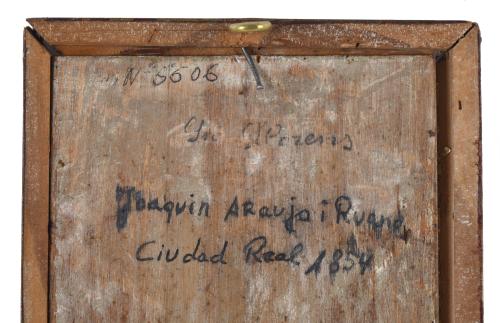 Nº 6606
Sr. Llorens
Joaquin Araujo i Ruano,
Ciudad Real 1854